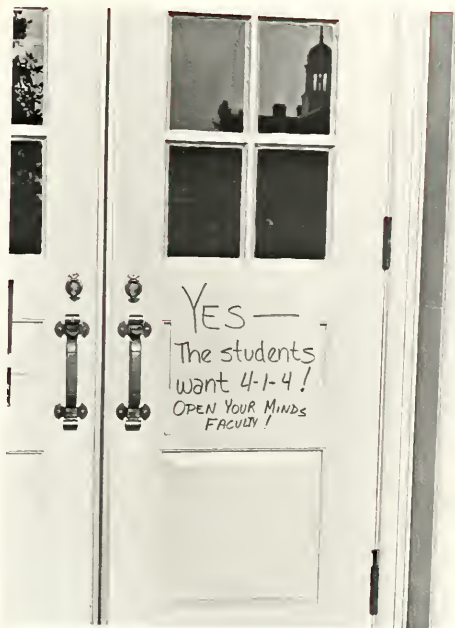 YES—
The students
want 4-1-4!
OPEN YOUR MINDS
FACULTY!